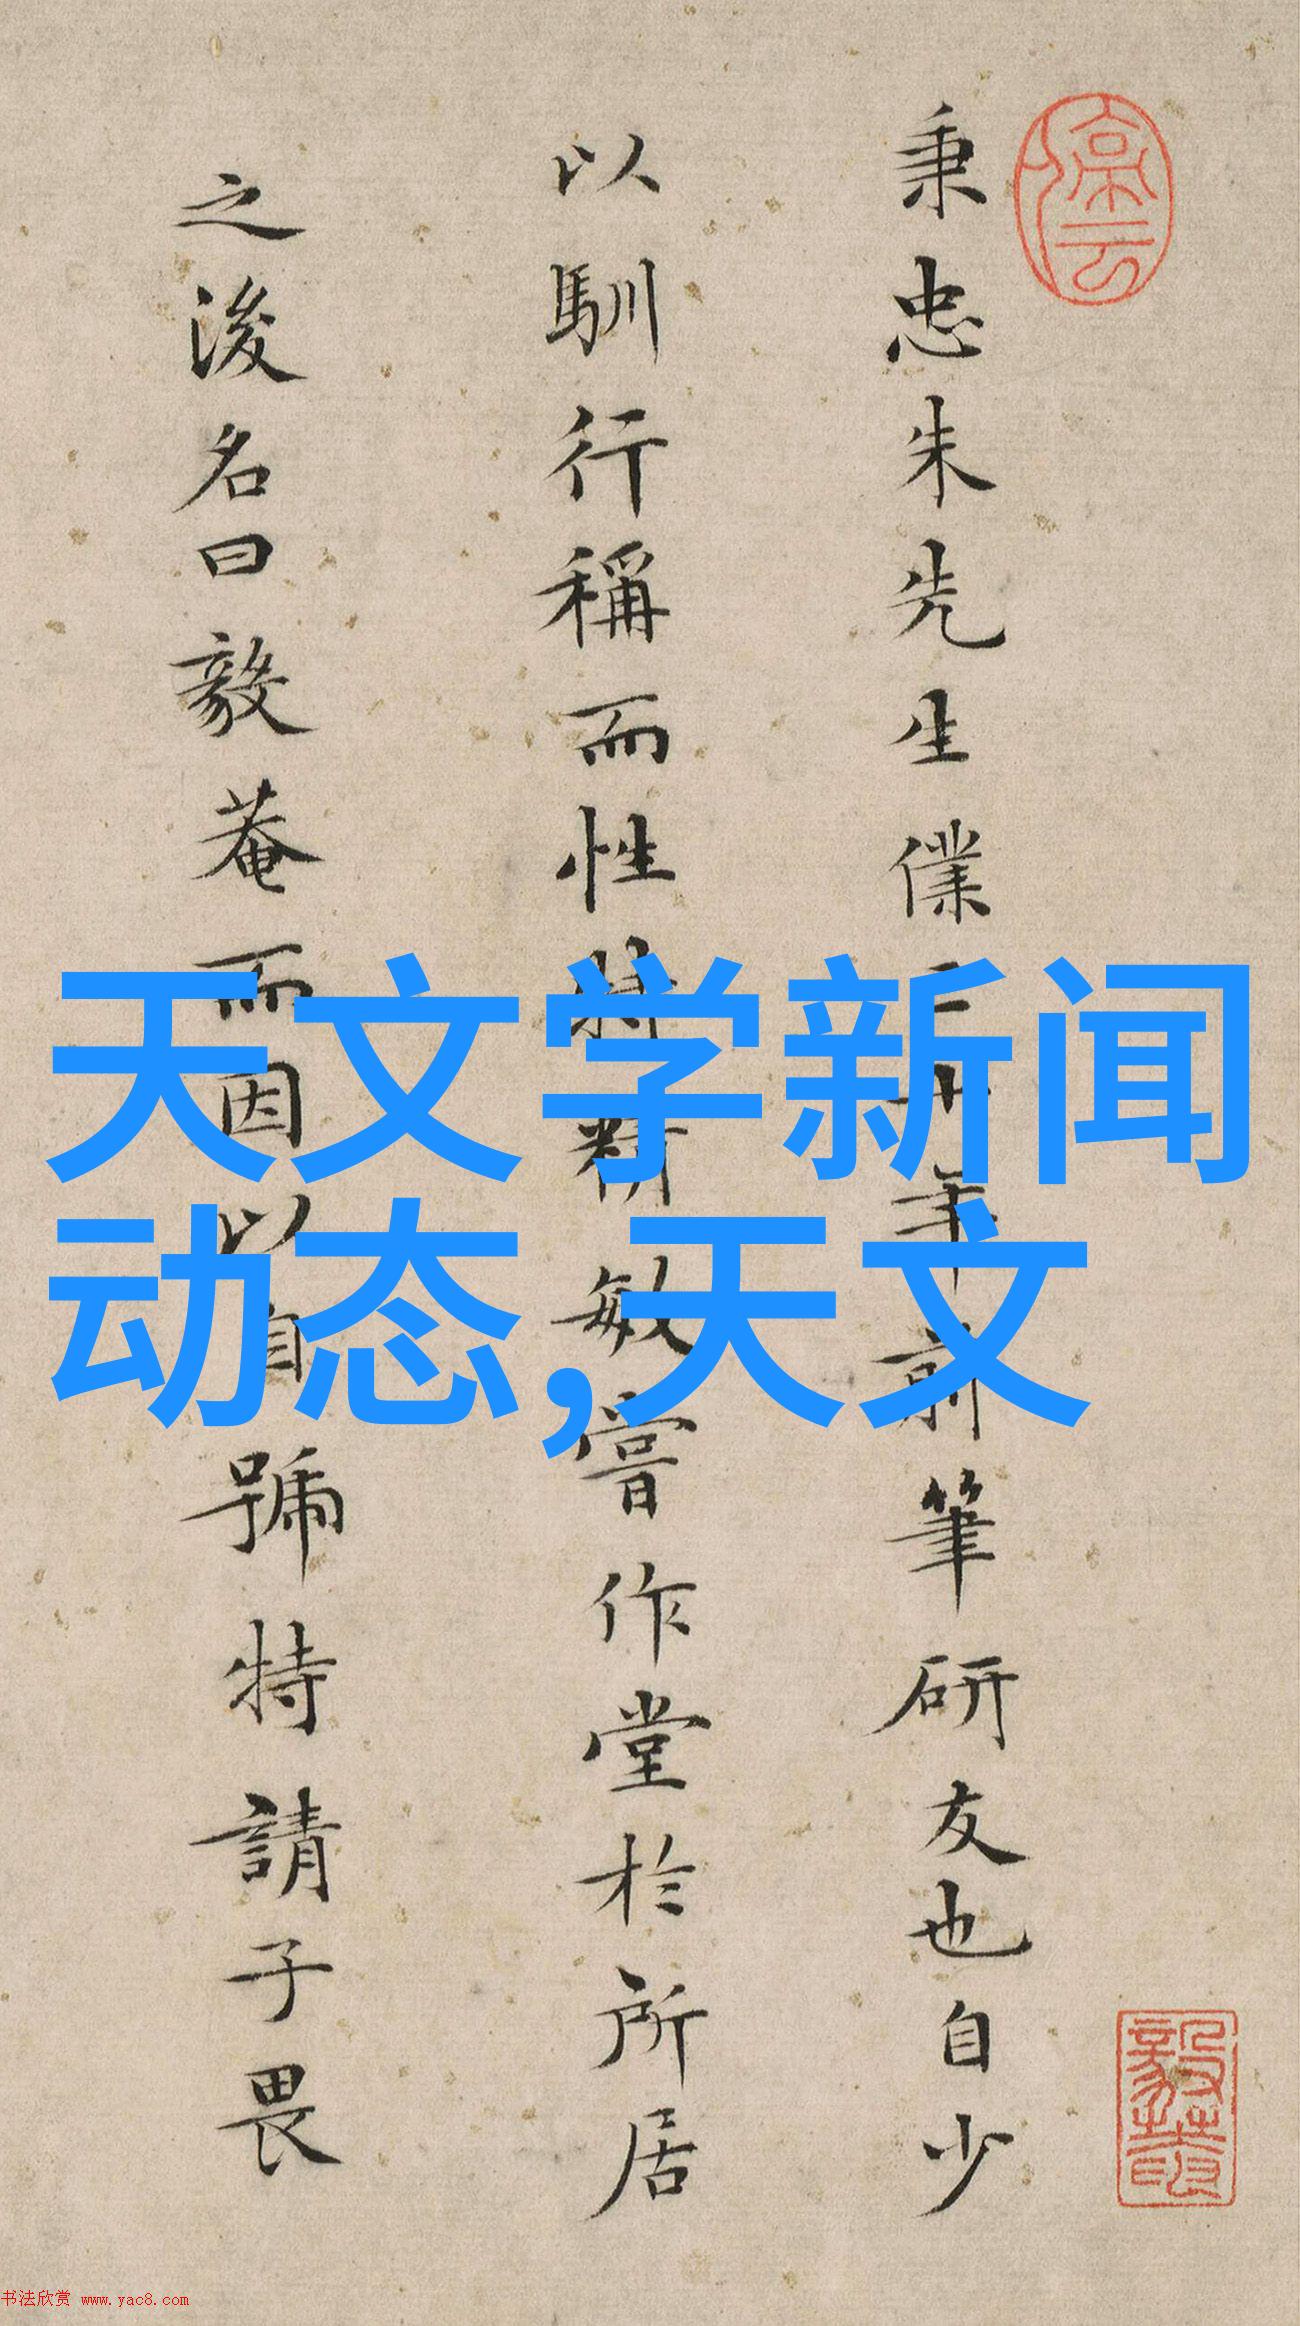 秉忠朱先生僕二十年前筆研友也自少
以馴行稱而性特精敏嘗作堂於所居
之後名曰毅菴而因以自號特請子畏
天文学新闻
动态,天文
书法欣赏 www.yac8.com